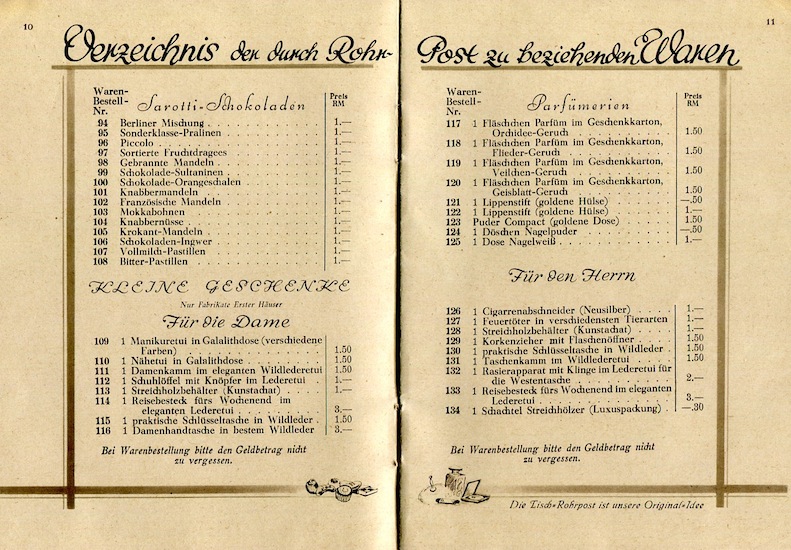 10
Verzeichnis der durch Rohr-
Waren-
Bestell-
Nr.
Sarotti-Schokoladen
Preis
RM
94 Berliner Mischung . . . . . . . . . . 1.—
95 Sonderklasse-Pralinen . . . . . . . . . 1.—
96 Piccolo . . . . . . . . . . . . . 1.—
97 Sortierte Fruchtdragees . . . . . . . . 1.—
98 Gebrannte Mandeln . . . . . . . . . . 1.—
99 Schokolade-Sultaninen . . . . . . . . . 1.—
100 Schokolade-Orangeschalen . . . . . . . . 1.—
101 Knabbermandeln . . . . . . . . . . . 1.—
102 Französische Mandeln . . . . . . . . . 1.—
103 Mokkabohnen . . . . . . . . . . . . 1.—
104 Knabbernüsse . . . . . . . . . . . . 1.—
105 Krokant-Mandeln . . . . . . . . . . . 1.—
106 Schokoladen-Ingwer . . . . . . . . . . 1.—
107 Vollmilch-Pastillen . . . . . . . . . . 1.—
108 Bitter-Pastillen . . . . . . . . . . . 1.—
KLEINE GESCHENKE
Nur Fabrikate Erster Häuser
Für die Dame
109 1 Manikuretui in Galalithdose (verschiedene
Farben) . . . . . . . . . . . . 1.50
110 1 Nähetui in Galalithdose . . . . . . . . 1.50
111 1 Damenkamm im eleganten Wildlederetui 1.50
112 1 Schuhlöffel mit Knöpfer im Lederetui . . 1.—
113 1 Streichholzbehälter (Kunstachat) . . . . 1.—
114 1 Reisebesteck fürs Wochenend im
eleganten Lederetui . . . . . . . . 3.—
115 1 praktische Schlüsseltasche in Wildleder . 1.50
116 1 Damenhandtasche in bestem Wildleder 3.—
Bei Warenbestellung bitte den Geldbetrag nicht
zu vergessen.
11
Post zu beziehenden Waren
Waren-
Bestell-
Nr.
Parfümerien
Preis
RM
117 1 Fläschchen Parfüm im Geschenkkarton,
Orchidee-Geruch . . . . . . . . . 1.50
118 1 Fläschchen Parfüm im Geschenkkarton,
Flieder-Geruch . . . . . . . . . . 1.50
119 1 Fläschchen Parfüm im Geschenkkarton,
Veilchen-Geruch . . . . . . . . . 1.50
120 1 Fläschchen Parfüm im Geschenkkarton,
Geisblatt-Geruch . . . . . . . . . 1.50
121 1 Lippenstift (goldene Hülse) . . . . . . —.50
122 1 Lippenstift (goldene Hülse) . . . . . . 1.—
123 Puder Compact (goldene Dose) . . . . . 1.50
124 1 Döschen Nagelpuder . . . . . . . . . —.50
125 1 Dose Nagelweiß . . . . . . . . . . . 1.—
Für den Herrn
126 1 Cigarrenabschneider (Neusilber) . . . . 1.—
127 1 Feuertöter in verschiedensten Tierarten 1.—
128 1 Streichholzbehälter (Kunstachat) . . . . 1.—
129 1 Korkenzieher mit Flaschenöffner . . . . 1.50
130 1 praktische Schlüsseltasche in Wildleder . 1.50
131 1 Taschenkamm im Wildlederetui . . . . 1.50
132 1 Rasierapparat mit Klinge im Lederetui für
die Westentasche . . . . . . . . . 2.—
133 1 Reisebesteck fürs Wochenend im eleganten
Lederetui . . . . . . . . . . . 3.—
134 1 Schachtel Streichhölzer (Luxuspackung) . —.30
Bei Warenbestellung bitte den Geldbetrag nicht
zu vergessen.
Die Tisch-Rohrpost ist unsere Original-Idee